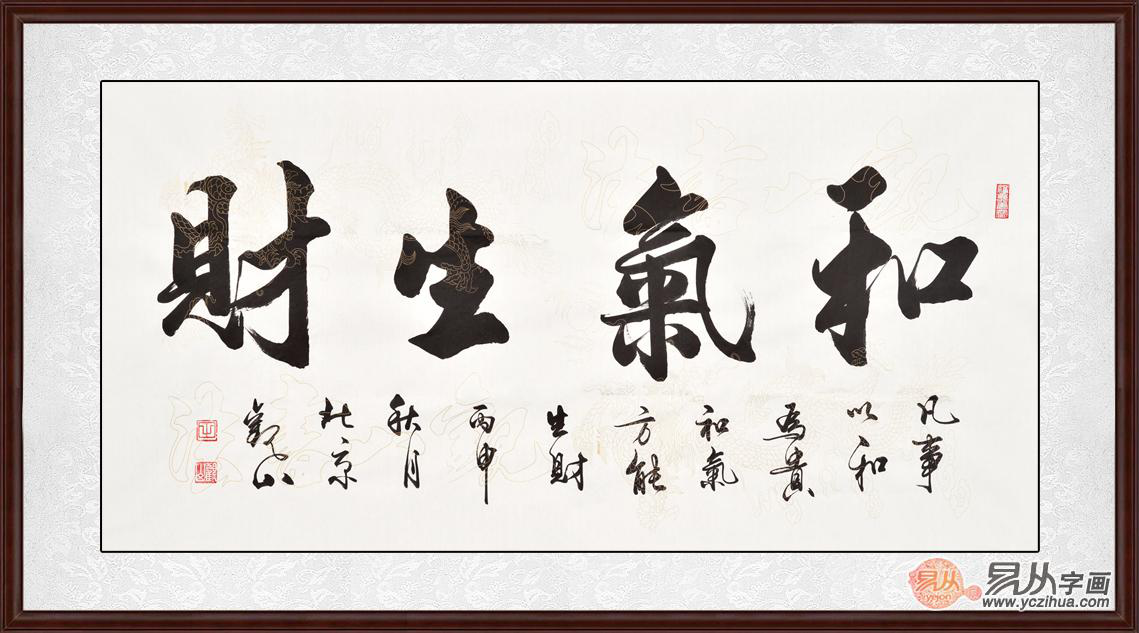 和氣生財
凡事
以和
爲貴
和氣
方能
生財
丙申
秋月
北京
觀山
易从
yigon
易从字画
www.yczihua.com